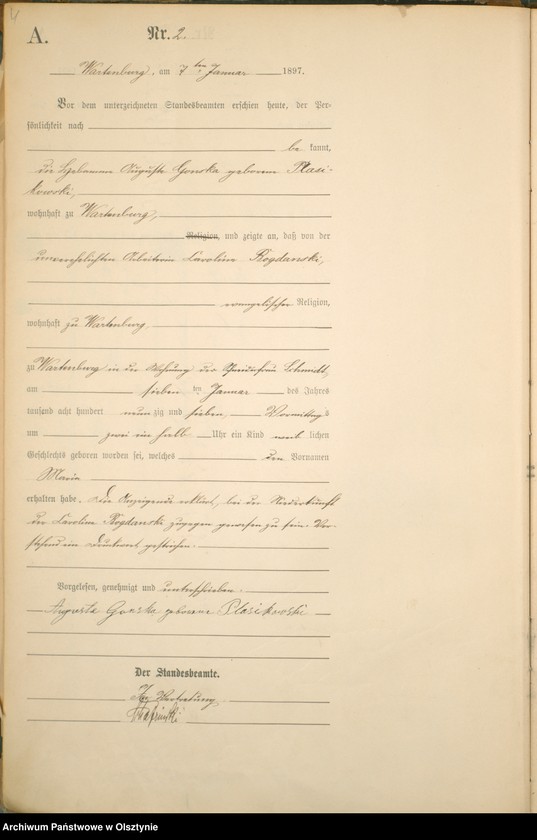 A.
Nr. 2.
Wartenburg, am 7ten Januar 1897.
Vor dem unterzeichneten Standesbeamten erschien heute, der Per-
sönlichkeit nach
be kannt,
die Hebamme Auguste Gonska geborene Plasi-
kowski,
wohnhaft zu Wartenburg,
Religion, und zeigte an, daß von der
unverehelichten Arbeiterin Caroline Rogdanski,
evangelischer Religion,
wohnhaft zu Wartenburg
zu Wartenburg in der Wohnung der Schmidt,
am sieben ten Januar des Jahres
tausend acht hundert neun zig und sieben, Vormittags
um zwei ein halb Uhr ein Kind weib lichen
Geschlechts geboren worden sei, welches den Vornamen
Maria
erhalten habe. Die Anzeigende erklärt, bei der Niederkunft
der Caroline Rogdanski zugegen gewesen zu sein. Vor-
stehend ein Druckwort gestrichen.
Vorgelesen, genehmigt und unterschrieben.
Auguste Gonska geborene Plasikowski
Der Standesbeamte.
In Vertretung
Archiwum Państwowe w Olsztynie